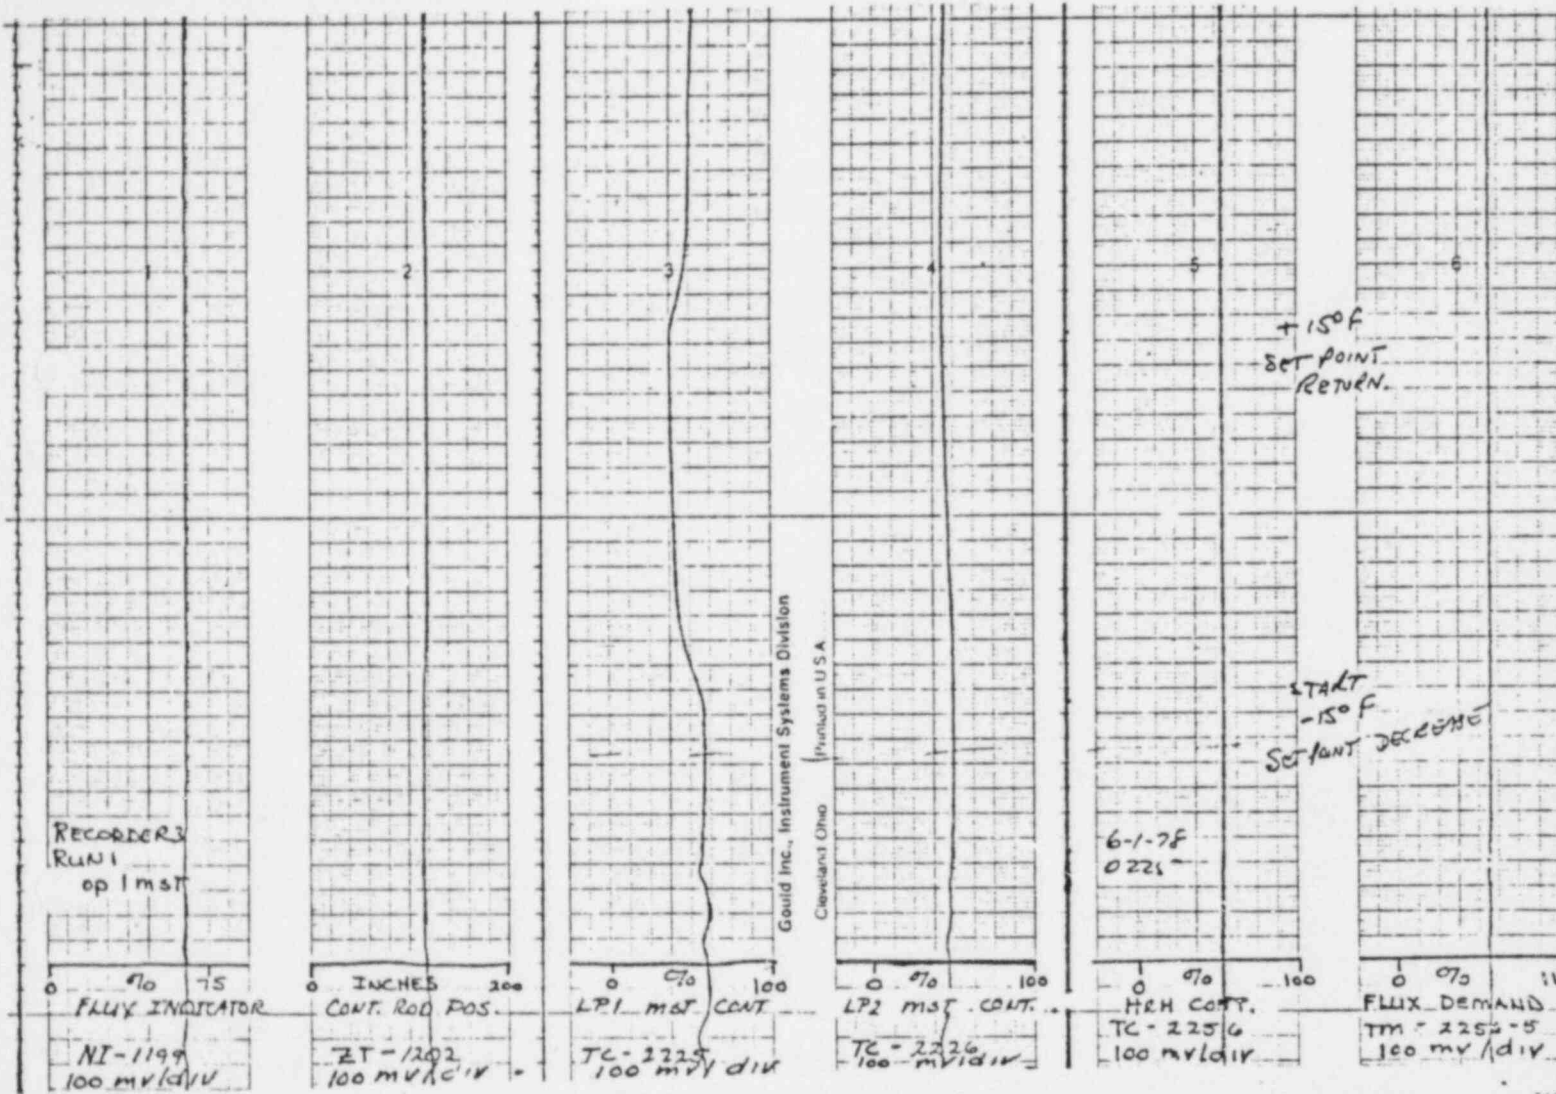 1
2
3
4
5
6
+ 15° F
SET POINT
RETURN.
START
-15° F
SET POINT DECREASE
Gould Inc., Instrument Systems Division
Cleveland Ohio
Printed in U S A
RECORDER 3
RUN 1
op 1 mst
6-1-78
0225
0 % 75
FLUX INDICATOR
NI-1199
100 mv/div
0 INCHES 200
CONT. ROD POS.
ZT-1202
100 mv/div
0 % 100
LP1 mst CONT
TC-2225
100 mv/div
0 % 100
LP2 mst CONT.
TC-2226
100 mv/div
0 % 100
HRH
TC-2256
100 mv/div
0 %
FLUX DEMAND
100 mv/div